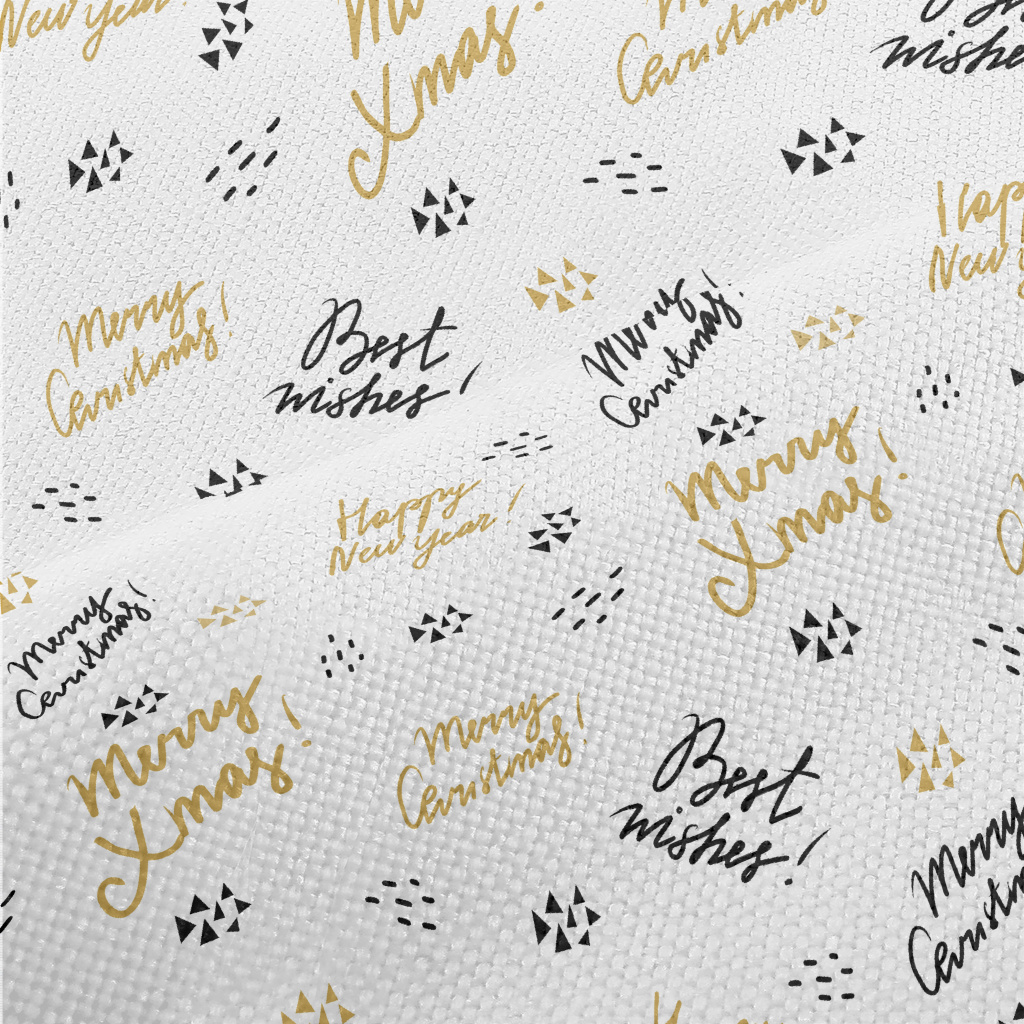 New Year!
Xmas!
Christmas
wishes
Merry
Christmas!
Best
wishes!
Merry
Christmas!
Happy
New
Happy
New Year!
Merry
Xmas!
Merry
Christmas!
Merry
Xmas!
Merry
Christmas!
Best
wishes!
Merry